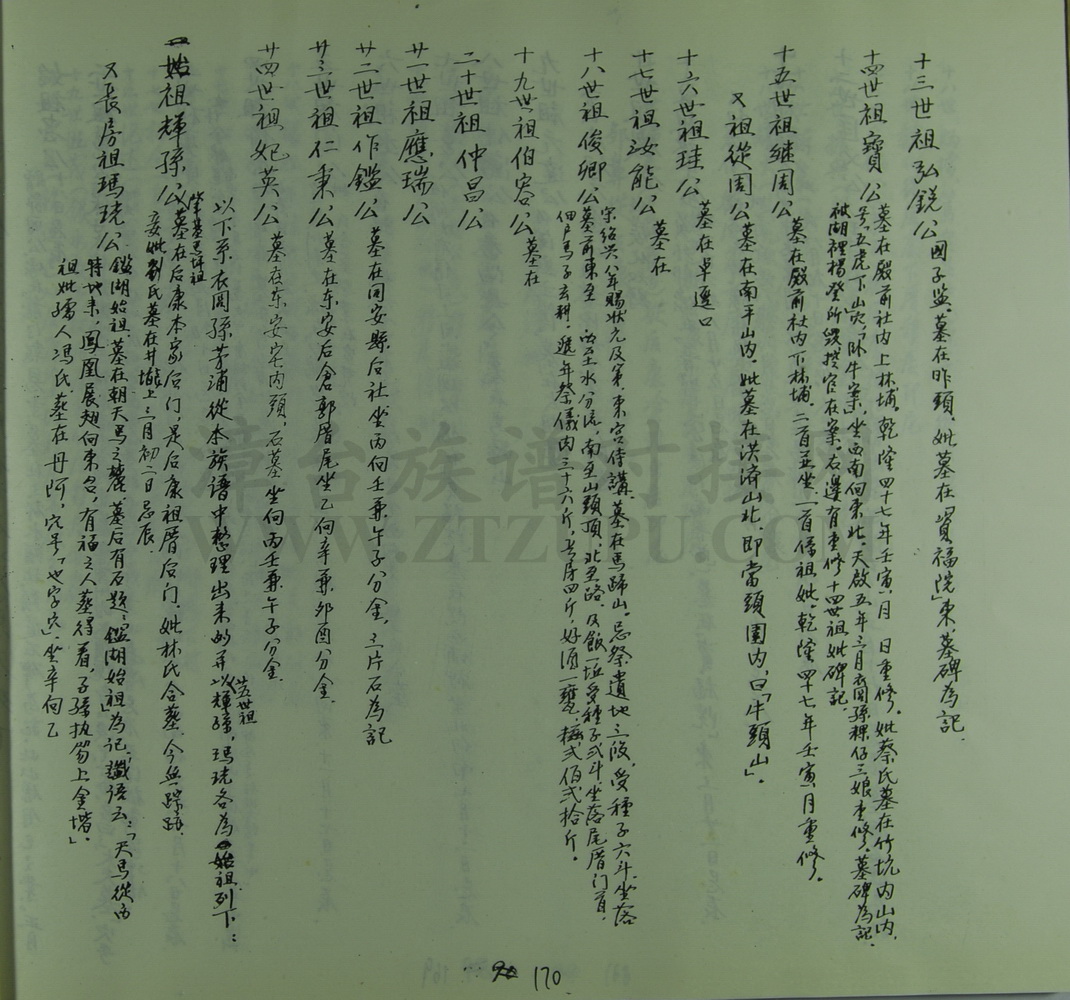 十三世祖弘銳公 國子监,墓在昨頭,妣墓在「資福院」東,墓碑為記.
十四世祖寶公 墓在殿前社内上林埔。乾隆四十七年壬寅 月 日重修。妣蔡氏墓在竹坑内山内,
号五虎下山穴,「卧牛案」,坐西南向東北,天啟五年三月 孫裸仔三娘重修,墓碑為記.
被湖裡楊登所毁 官在案,右邊有重修十四世祖妣碑記.
十五世祖继周公 墓在殿前社内下林埔。二首並坐,一首僑祖妣,乾隆四十七年壬寅 月重修。
又祖從周公 墓在南平山内。妣墓在洪济山北,即当頭圍内,曰「牛頭山」。
十六世祖珪公 墓在卓邊口
十七世祖汝能公 墓在
十八世祖俊卿公 宋绍兴八年賜狀元及第,東宫侍講,墓在馬蹄山。忌祭遺地三段,受種子六斗,坐落
墓前東至 西至水分流,南至山頭頂,北至路,及飯一坵受種子弍斗坐落尾厝门首,
佃户馬子去耕,遞年祭儀肉三十六斤,長房四斤,好酒一甕,梅弍佰弍拾斤。
十九世祖伯容公 墓在
二十世祖仲昌公
廿一世祖應瑞公
廿二世祖作鑑公 墓在同安縣后社坐丙向壬兼午子分金,三片石為記
廿三世祖仁秉公 墓在东安后倉郭厝尾坐乙向辛兼卯酉分金.
廿四世祖妃英公 墓在东安宅内頭,石墓坐向丙壬兼午子分金.
以下系 孫芳浦從本族谱中整理出来的并以輝孫,瑪珖各為始祖列下:
廿五世祖
一始祖輝孫公 墓在后康本家后门,是后康祖厝后门,妣林氏合墓,今無踪跡.
肇基 祖
妾妣劉氏墓在井 上三月初二日忌辰.
又長房祖瑪珖公 鑑湖始祖,墓在朝天馬之麓,墓后有石題「鑑湖始祖」為记,讖语云:「天馬從西
特地来,鳳凰展翅向東台,有福之人葬得着,子孫执笏上金堦」。
祖妣孺人冯氏.葬在丹阿,穴号「也字穴」,坐辛向乙
170
章台族谱对接网
WWW.ZTZUPU.COM